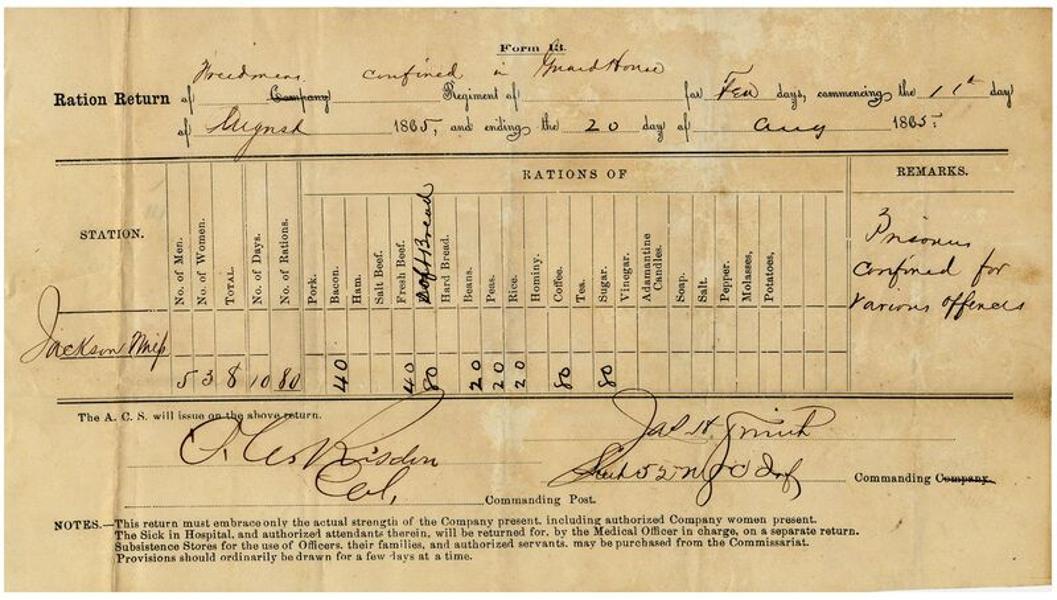 Form 13.
Freedmens confined in Guard House
Ration Return of Company Regiment of for Ten days, commencing the 11th day
of August 1865, and ending the 20 day of Aug 1865:
RATIONS OF
REMARKS.
STATION.
No. of Men.
No. of Women.
TOTAL.
No. of Days.
No. of Rations.
Pork.
Bacon.
Ham.
Salt Beef.
Fresh Beef.
Soft Bread
Hard Bread.
Beans.
Peas.
Rice.
Hominy.
Coffee.
Tea.
Sugar.
Vinegar.
Adamantine Candles.
Soap.
Salt.
Pepper.
Molasses,
Potatoes,
Prisoners
confined for
various offences
Jackson Miss
5 3 8 10 80 40 40 80 20 20 20 80 80
The A. C. S. will issue on the above return.
Risdon
Col,
Commanding Post.
Jas H
52
Commanding Company.
NOTES.—This return must embrace only the actual strength of the Company present, including authorized Company women present.
The Sick in Hospital, and authorized attendants therein, will be returned for, by the Medical Officer in charge, on a separate return.
Subsistence Stores for the use of Officers, their families, and authorized servants, may be purchased from the Commissariat.
Provisions should ordinarily be drawn for a few days at a time.